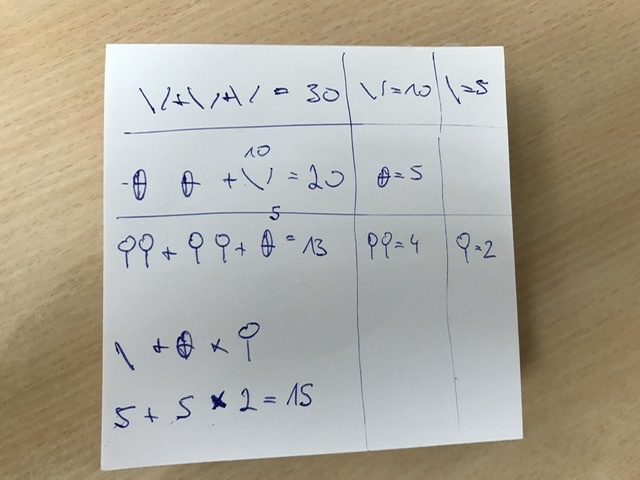 \/+\/+\/ = 30 \/=10 \=5
10
-θ θ +\/ = 20 θ=5
5
ϙϙ + ϙϙ + θ = 13 ϙϙ=4 ϙ=2
\ + θ × ϙ
5 + 5 × 2 = 15